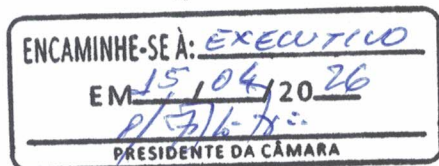 ENCAMINHE-SE À: EXECUTIVO
EM 15 / 04 / 20 26
PRESIDENTE DA CÂMARA